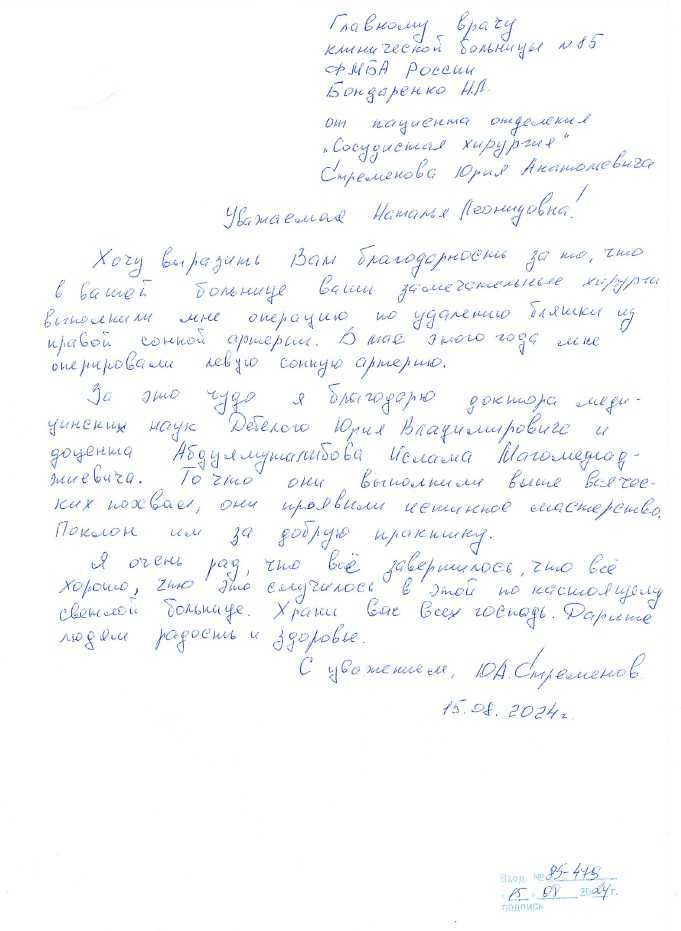 Главному врачу
клинической больницы №85
ФМБА России
Бондаренко Н.Л.
от пациента отделения
„Сосудистая хирургия"
Стременова Юрия Анатольевича
Уважаемая Наталья Леонидовна!
Хочу выразить Вам благодарность за то, что
в вашей больнице ваши замечательные хирурги
выполнили мне операцию по удалению бляшки из
правой сонной артерии. В мае этого года мне
оперировали левую сонную артерию.
За это чудо я благодарю доктора меди-
цинских наук Дебелого Юрия Владимировича и
доцента Абдулмуталибова Ислама Магомедгад-
жиевича. То что они выполнили выше всячес-
ких похвал, они проявили истинное мастерство.
Поклон им за добрую практику.
Я очень рад, что всё завершилось, что всё
хорошо, что это случилось в этой по настоящему
светлой больнице. Храни Вас всех господь. Дарите
людям радость и здоровье.
С уважением, Ю.А. Стременов.
15.08.2024г.
Вход. № 85-479
"15" 08 2024г.
подпись